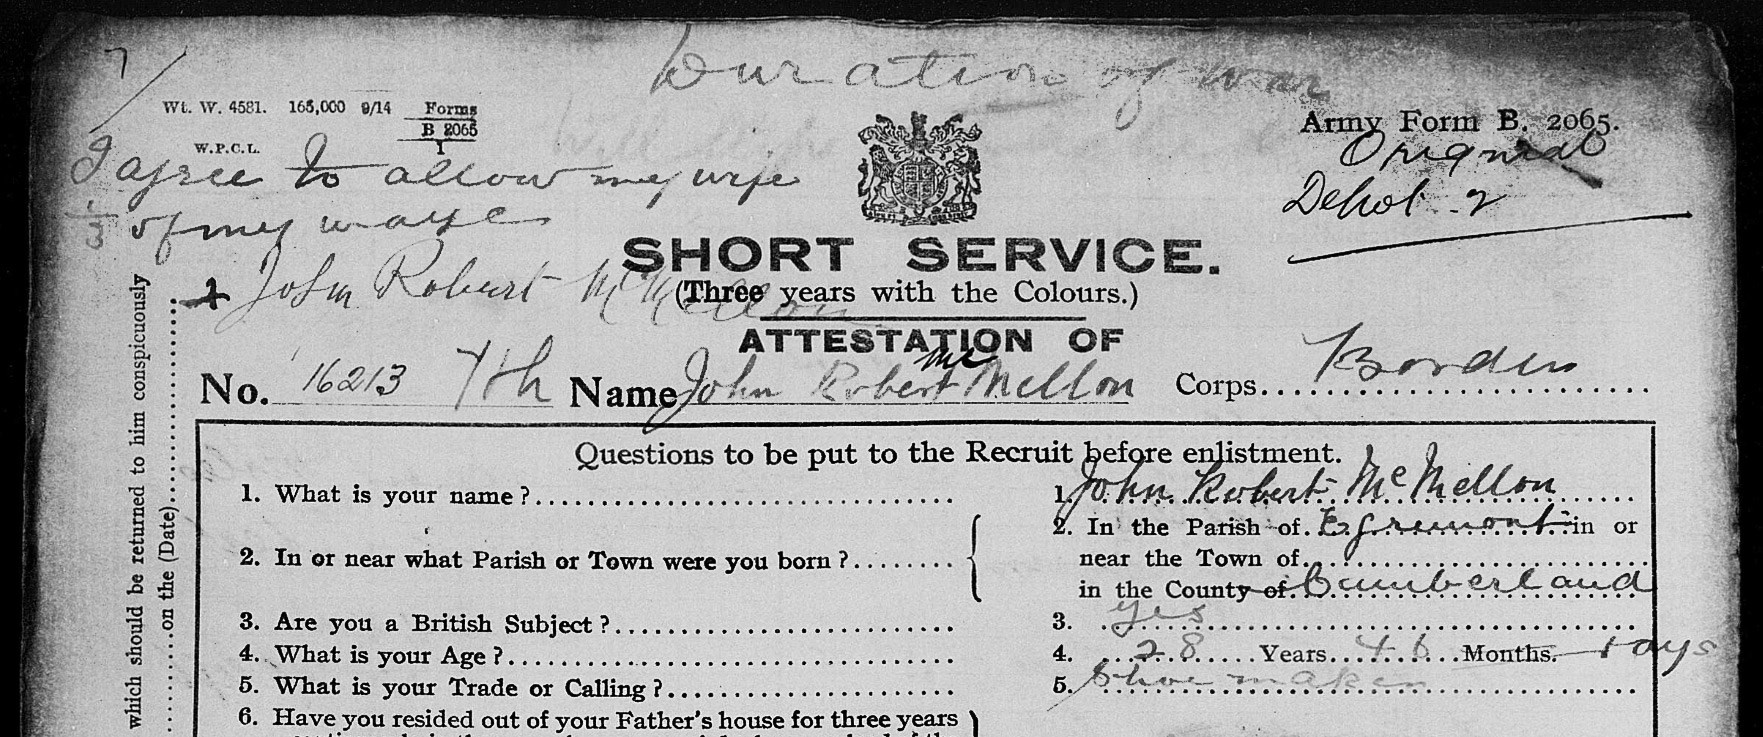 7
Duration of war
Wt. W. 4581. 165,000 9/14 Forms
B 2065
1
W.P.C.L.
Army Form B. 2065.
Original
Depot. 2
I agree to allow my wife
1/3 of my wage
John Robert McMellon
SHORT SERVICE.
(Three years with the Colours.)
ATTESTATION OF
No. 16213 7th Name John Robert Mc Mellon Corps Border
Questions to be put to the Recruit before enlistment.
1. What is your name? 1. John Robert McMellon
2. In or near what Parish or Town were you born? 2. In the Parish of Egremont in or
near the Town of
in the County of Cumberland
3. Are you a British Subject? 3. yes
4. What is your Age? 4. 28 Years Months. days
5. What is your Trade or Calling? 5. Shoe maker
6. Have you resided out of your Father's house for three years
which should be returned to him conspicuously
on the (Date)